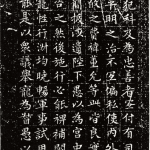 犯科及為忠善者宜付有司
平明之治不宜偏私使內外
攸之費禕董允等此皆良實
簡拔以遺陛下愚以為宮中
咨之然後施行必能裨補闕
寵性行淑均曉暢軍事試用
能是以衆議舉寵為督愚以